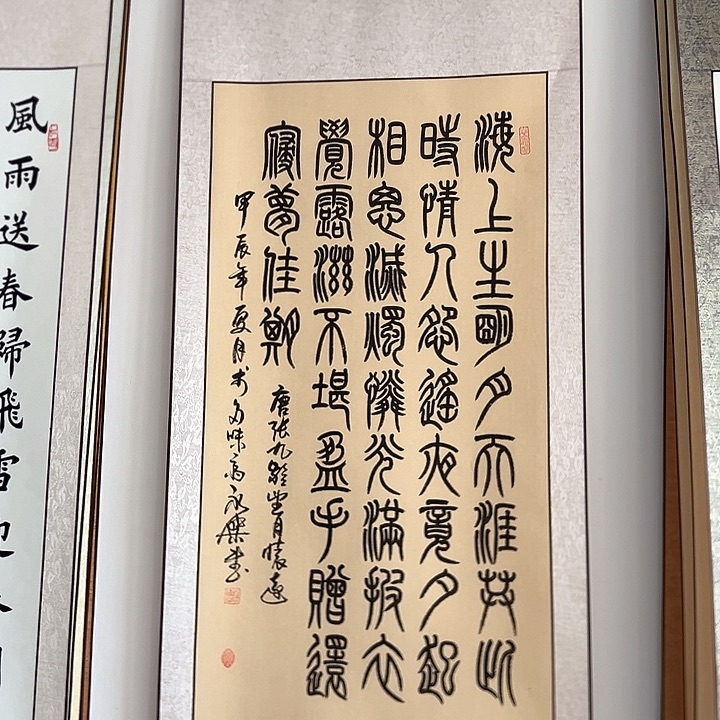 海上生明月天涯共此
時情人怨遙夜竟夕起
相思滅燭憐光滿披衣
覺露滋不堪盈手贈還
寢夢佳期
唐張九齡望月懷遠
甲辰年夏月於多味齋永樂書
風雨送春歸飛雪迎春到